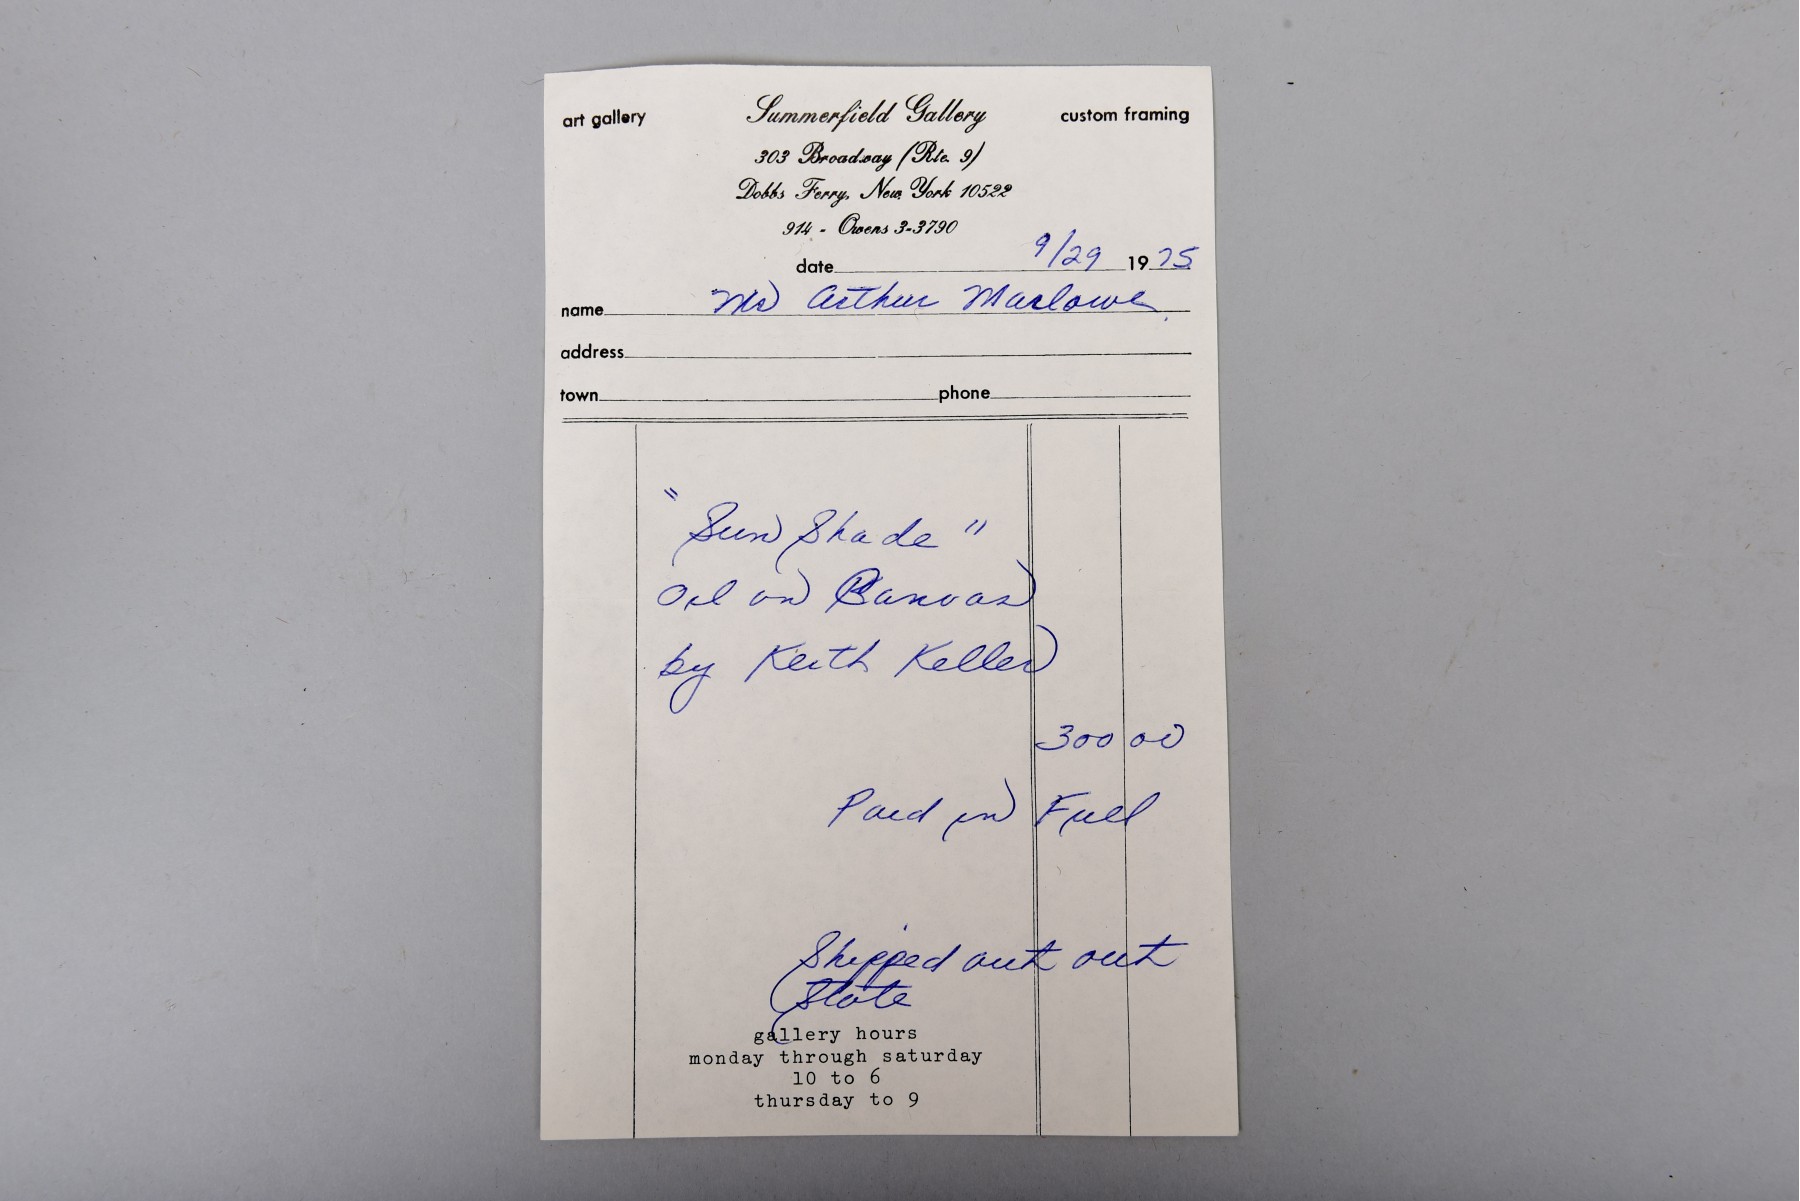 art gallery Summerfield Gallery custom framing
303 Broadway (Rte. 9)
Dobbs Ferry, New York 10522
914 - Owens 3-3790
date 9/29 1975
name Mr Arthur Marlowe
address
town phone
"Sun Shade"
Oil on Canvas
by Keith Keller
300 00
Paid in Full
Shipped out out
State
gallery hours
monday through saturday
10 to 6
thursday to 9